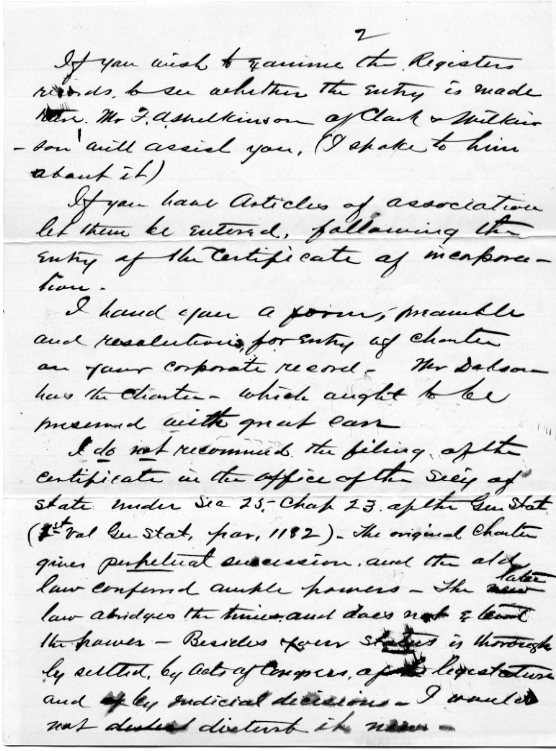 2
If you wish to examine the Registers
records, to see whether the entry is made
Mr F. A. Wilkinson of Clark & Wilkin
- son will assist you. (I spoke to him
about it)
If you have Articles of association
let them be entered, following the
entry of the Certificate of incorpora -
tion.
I hand you a form, preamble
and resolutions, for entry of charter
on your corporate record - Mr Dodson
has the Charter - which ought to be
preserved with great care
I do not recommend the filing of the
certificate in the office of the Secy of
State under Sec 25, Chap 23 of the Gen Stat
(1st Vol Gen Stat, par, 1182) - The original Charter
gives perpetual succession, and the old
law conferred ample powers - The later
law abridges the time and does not extend
the power - Besides your status is thorough
ly settled, by Acts of Congress, of legislature
and by judicial decisions - I would
not disturb it now -